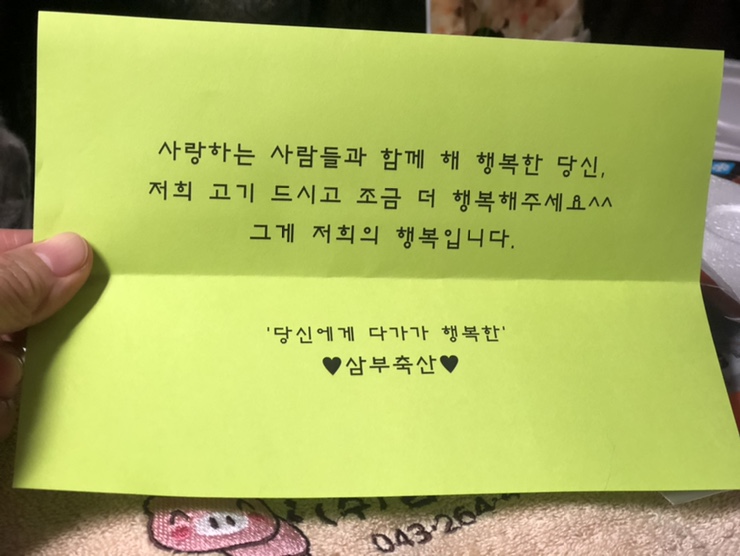 사랑하는 사람들과 함께 해 행복한 당신,
저희 고기 드시고 조금 더 행복해주세요^^
그게 저희의 행복입니다.
'당신에게 다가가 행복한'
♥삼부축산♥
(주)
043-264-